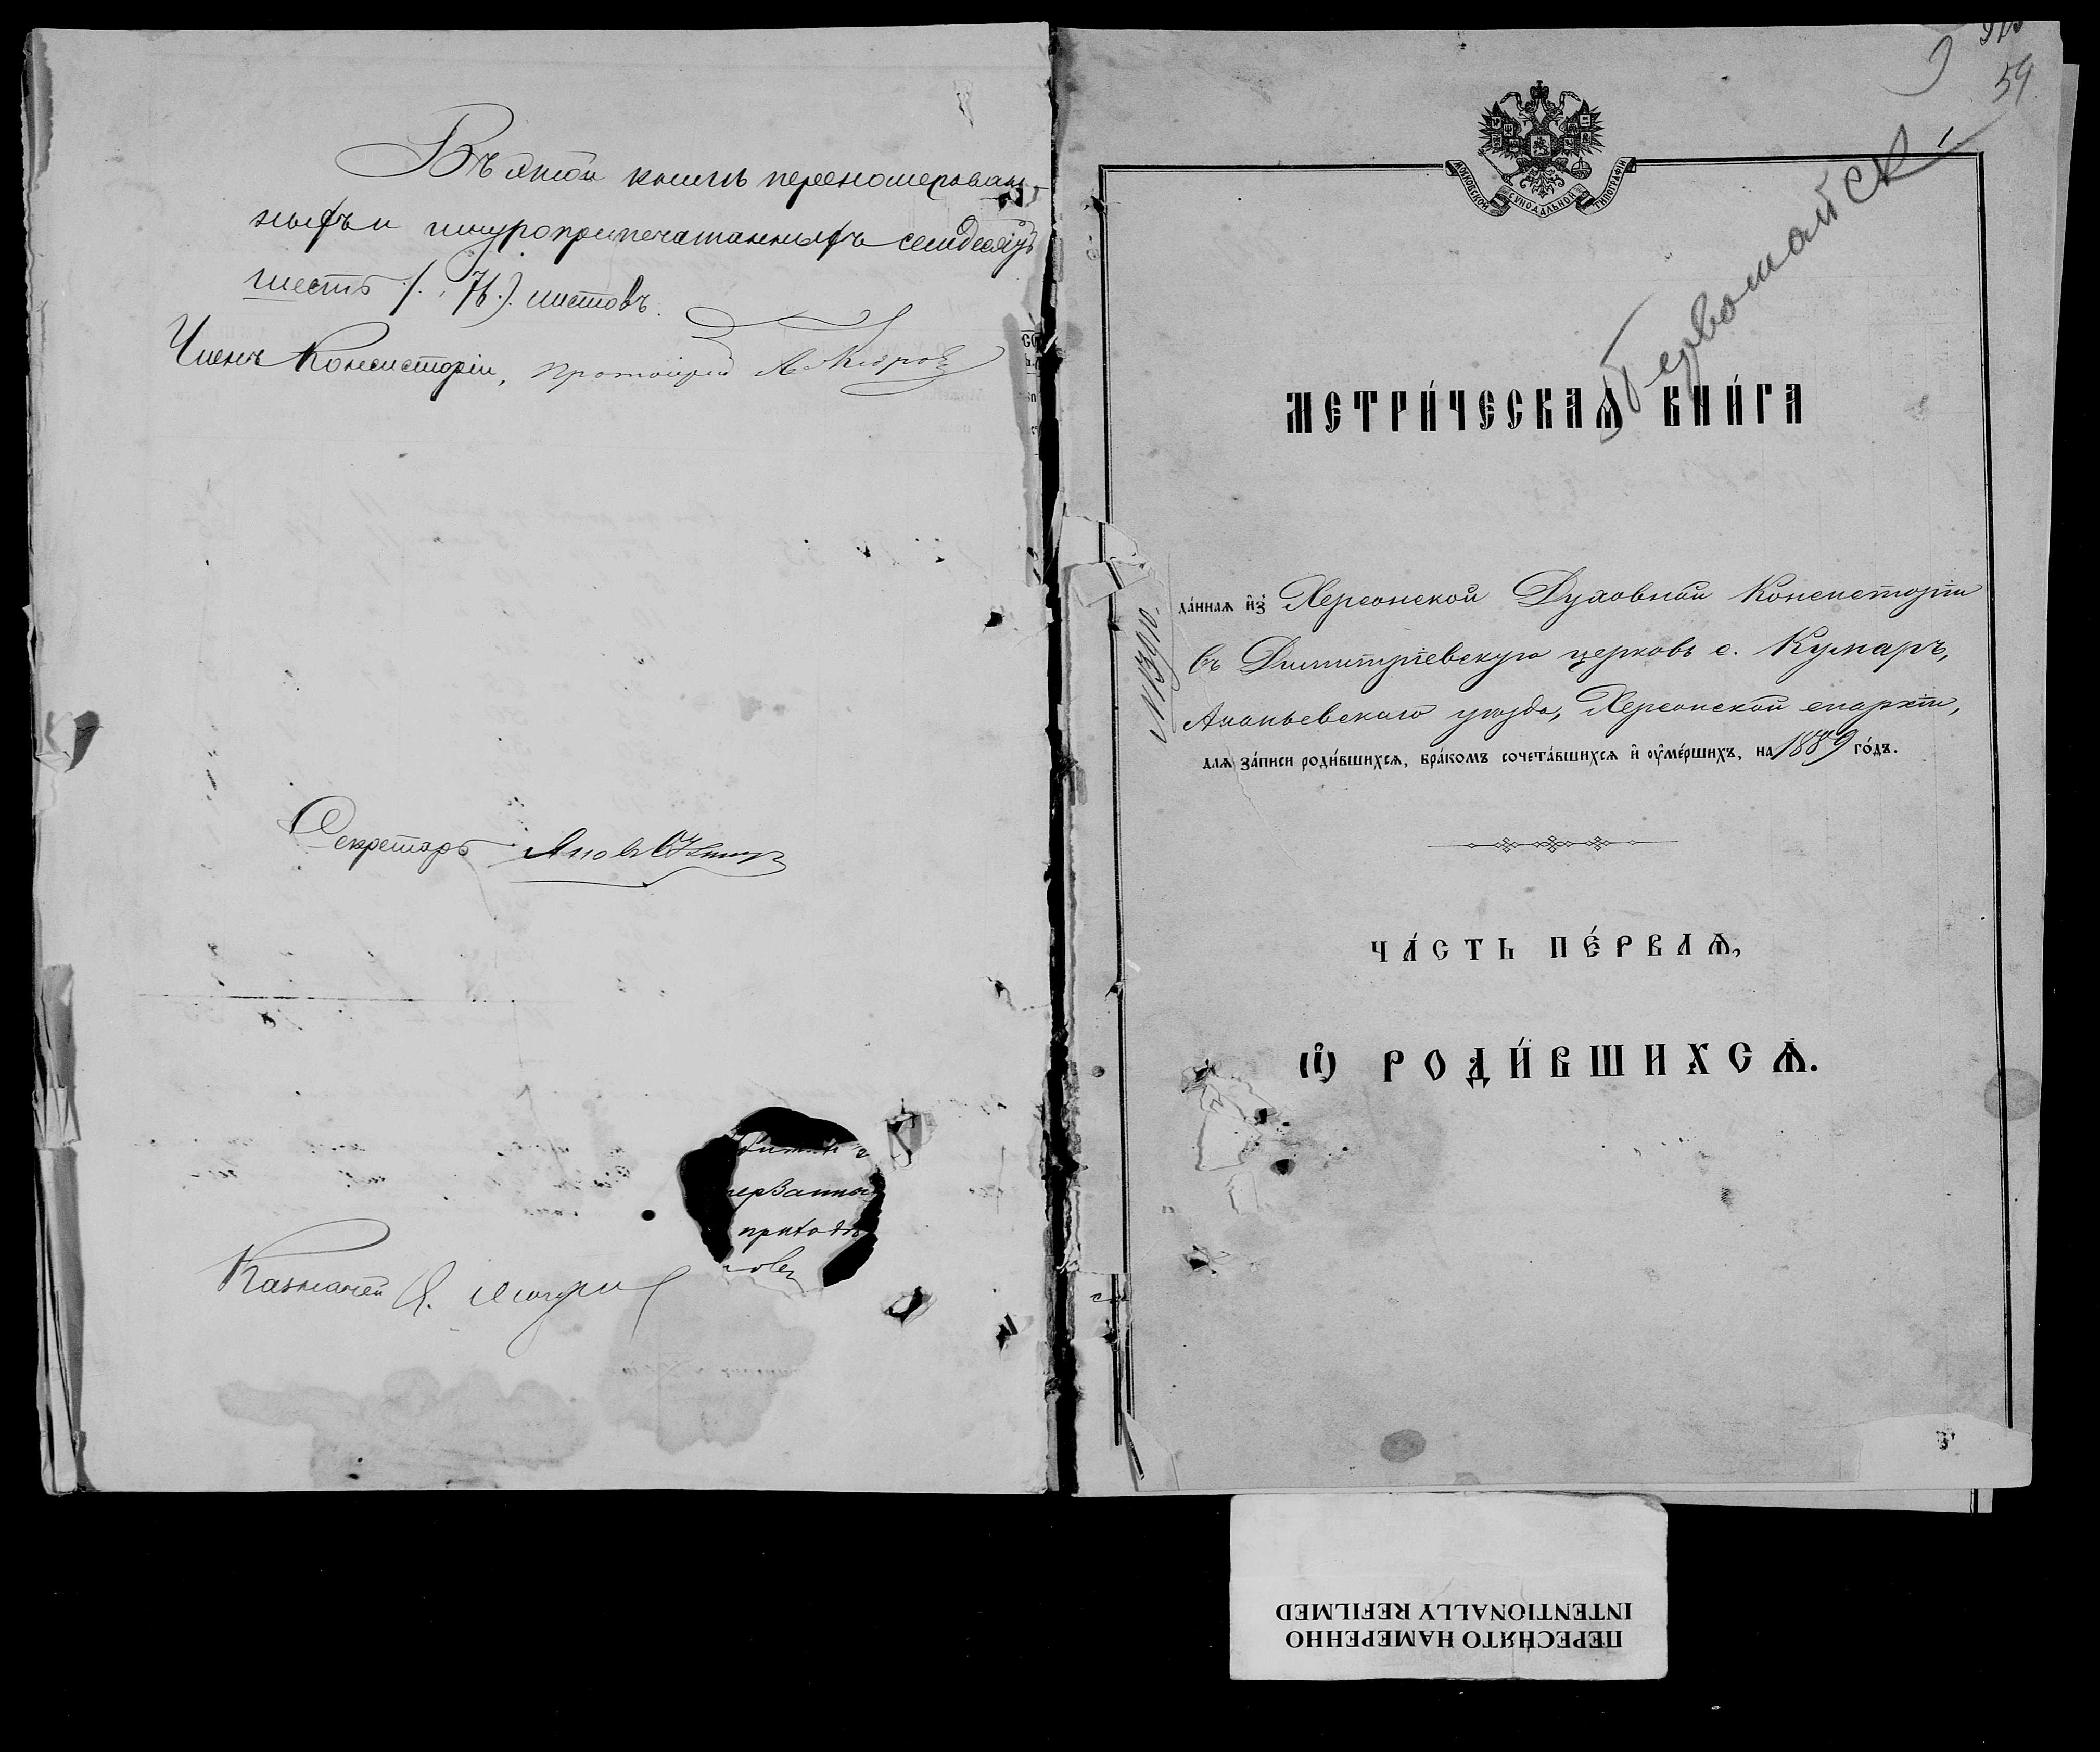 Въ этой книгѣ перенумерован-
ныхъ и шнуроприпечатанныхъ семьдесятъ
шесть /. 76 ./. листовъ.
Членъ Консисторіи, Протоіерей
Секретарь
Казначей
приходо
59
1
МОСКОВСКОЙ СѴНОДАЛЬНОЙ ТИПОГРАФІИ
Первомайск
МЕТРИ́ЧЕСКАѦ КНИ́ГА
№ 13910.
да́ннаѧ и҆зъ Херсонской Духовной Консисторіи
въ Димитріевскую церковь с. Кумаръ,
Ананьевскаго уѣзда, Херсонской епархіи,
длѧ за́писи роди́вшихсѧ, бра́комъ сочета́вшихсѧ и҆ ᲂу҆ме́ршихъ, на 1889 го́дъ.
ЧА́СТЬ ПЕ́РВАѦ,
Ѡ҆ РОДИ́ВШИХСѦ.
ПЕРЕСНЯТО НАМЕРЕННО
INTENTIONALLY REFILMED